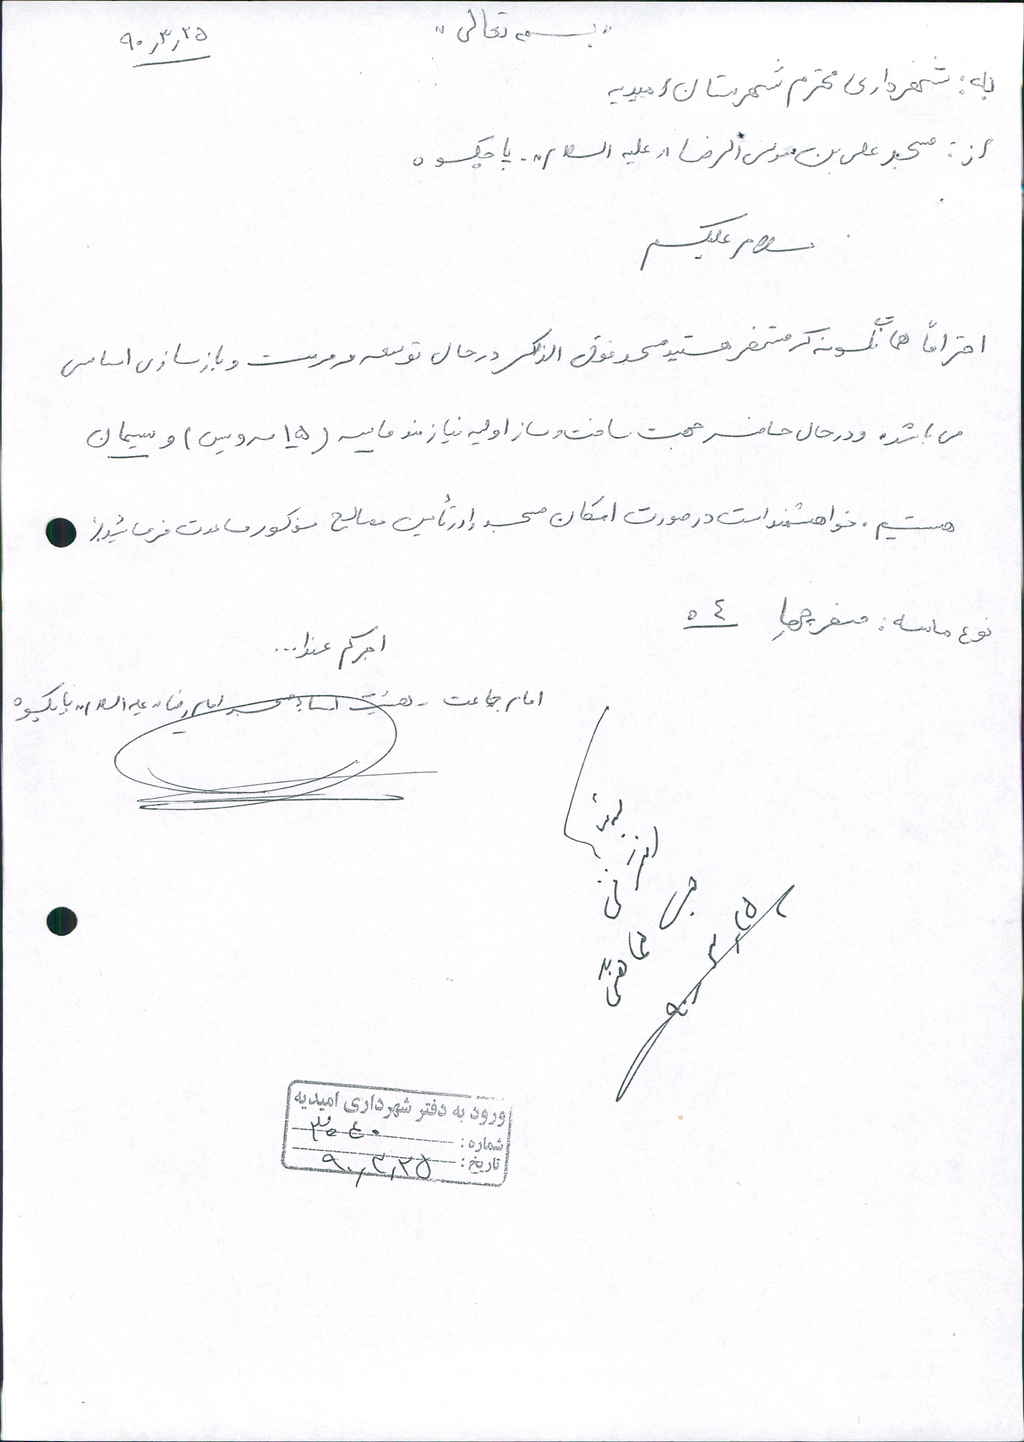 "بسمه تعالی"
۹۰٫۳٫۲۵
به: شهرداری محترم شهرستان امیدیه
از: مسجد علی بن موسی الرضا «علیه السلام». پاچکوه
سلام علیکم
احتراماً همانگونه که مستحضر هستید مسجد فوق الذکر در حال توسعه و مرمت و بازسازی اساسی
می باشد. و در حال حاضر جهت ساخت و ساز اولیه نیازمند ماسه (۱۵ سرویس) و سیمان
هستیم. خواهشمند است در صورت امکان مسجد را در تأمین مصالح مذکور مساعدت فرمائید.
نوع ماسه: صفر چهار ۰۴
اجرکم عندا...
امام جماعت - هیئت امناء مسجد امام رضا «علیه السلام»
۹۰٫۳٫۲۵
ورود به دفتر شهرداری امیدیه
شماره: ۳۵۴۰
تاریخ: ۹۰٫۳٫۲۵